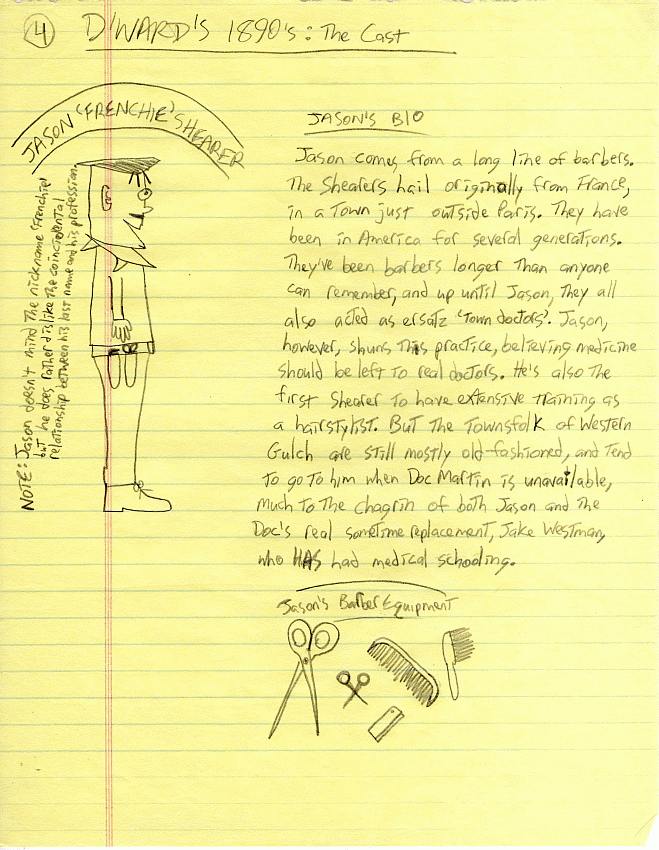 4
D'WARD'S 1890's: The Cast
JASON 'FRENCHIE' SHEARER
NOTE: Jason doesn't mind the nickname 'Frenchie'
but he does rather dislike the coincidental
relationship between his last name and his profession.
JASON'S BIO
Jason comes from a long line of barbers.
The Shearers hail originally from France,
in a Town just outside Paris. They have
been in America for several generations.
They've been barbers longer than anyone
can remember, and up until Jason, they all
also acted as ersatz 'Town doctors'. Jason,
however, shuns this practice, believing medicine
should be left to real doctors. He's also the
first Shearer to have extensive training as
a hairstylist. But the Townsfolk of Western
Gulch are still mostly old-fashioned, and tend
to go to him when Doc Martin is unavailable,
much to the chagrin of both Jason and the
Doc's real sometime replacement, Jake Westman,
who HAS had medical schooling.
Jason's Barber Equipment